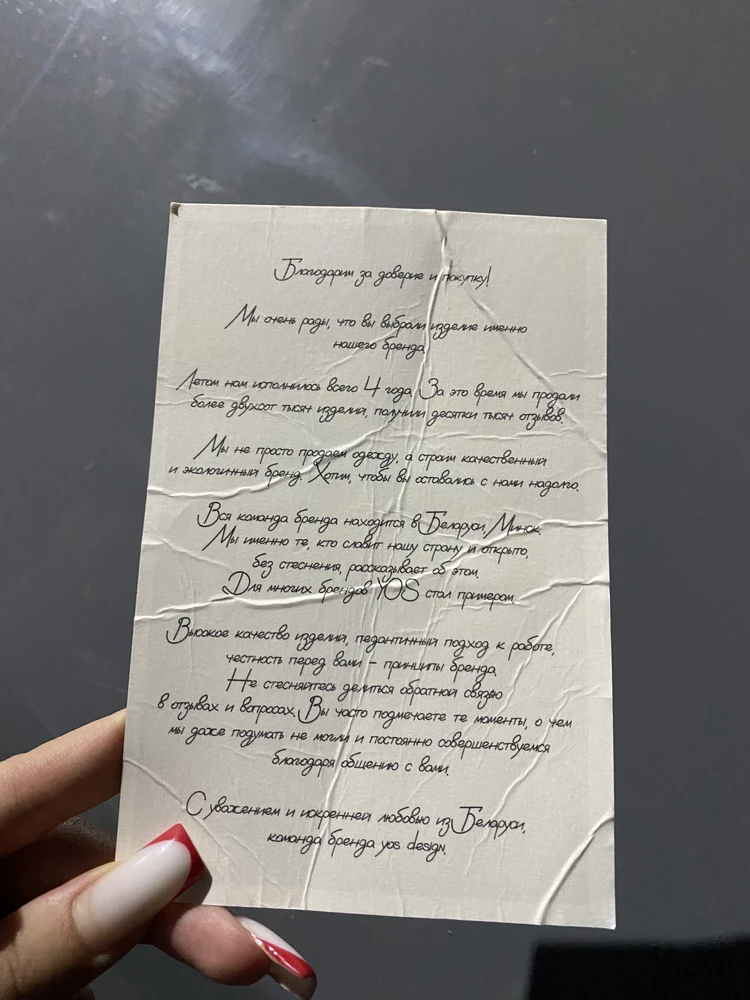 Благодарим за доверие и покупку!
Мы очень рады, что вы выбрали изделие именно
нашего бренда.
Летом нам исполнилось всего 4 года. За это время мы продали
более двухсот тысяч изделий, получили десятки тысяч отзывов.
Мы не просто продаем одежду, а строим качественный
и экологичный бренд. Хотим, чтобы вы оставались с нами надолго.
Вся команда бренда находится в Беларуси, Минск.
Мы именно те, кто славит нашу страну и открыто,
без стеснения, рассказывает об этом.
Для многих брендов YOS стал примером.
Высокое качество изделий, педантичный подход к работе,
честность перед вами – принципы бренда.
Не стесняйтесь делиться обратной связью
в отзывах и вопросах. Вы часто подмечаете те моменты, о чем
мы даже подумать не могли и постоянно совершенствуемся
благодаря общению с вами.
С уважением и искренней любовью из Беларуси,
команда бренда yos design.